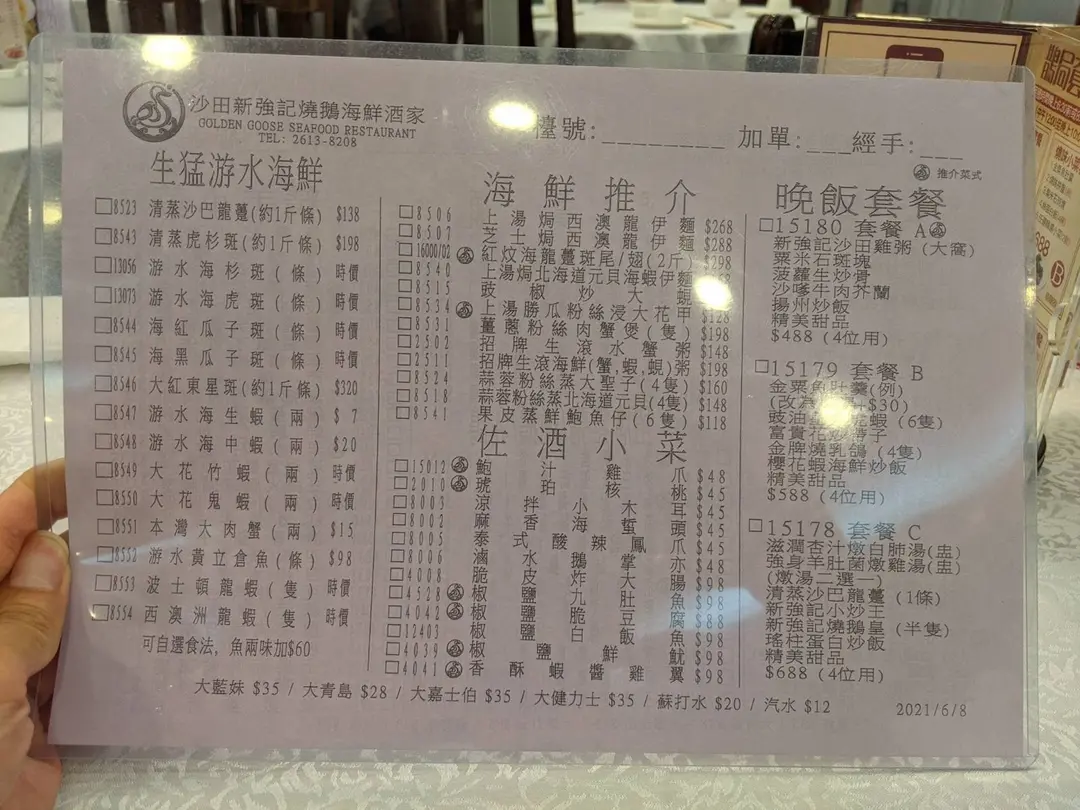 沙田新強記燒鵝海鮮酒家
GOLDEN GOOSE SEAFOOD RESTAURANT
TEL: 2613-8208
檯號:________ 加單:___ 經手:___
推介菜式
生猛游水海鮮
8523 清蒸沙巴龍躉(約1斤條) $138
8543 清蒸虎杉斑(約1斤條) $198
13056 游水海杉斑(條) 時價
13073 游水海虎斑(條) 時價
8544 海紅瓜子斑(條) 時價
8545 海黑瓜子斑(條) 時價
8546 大紅東星斑(約1斤條) $320
8547 游水海生蝦(兩) $ 7
8548 游水海中蝦(兩) $20
8549 大花竹蝦(兩) 時價
8550 大花鬼蝦(兩) 時價
8551 本灣大肉蟹(兩) $15
8552 游水黃立倉魚(條) $98
8553 波士頓龍蝦(隻) 時價
8554 西澳洲龍蝦(隻) 時價
可自選食法, 魚兩味加$60
海鮮推介
8506 上湯焗西澳龍伊麵 $268
8507 芝士焗西澳龍伊麵 $288
16000/02 紅炆海龍躉斑尾/翅(2斤) $298
8540 上湯焗北海道元貝海蝦伊麵
8515 豉椒炒大蜆
8534 上湯勝瓜粉絲浸大花甲 $128
8531 薑蔥粉絲肉蟹煲(隻) $198
2502 招牌生滾水蟹粥 $148
2511 招牌生滾海鮮(蟹,蝦,蜆)粥 $198
8524 蒜蓉粉絲蒸大聖子(4隻) $160
8518 蒜蓉粉絲蒸北海道元貝(4隻) $148
8541 果皮蒸鮮鮑魚仔(6隻) $118
佐酒小菜
15012 鮑汁雞爪 $48
2010 琥珀核桃 $45
8003 涼拌小木耳 $45
8002 麻香海蜇頭 $45
8005 泰式酸辣鳳爪 $45
8006 滷水鵝掌亦 $48
4008 脆皮炸大腸 $98
4528 椒鹽九肚魚 $98
4042 椒鹽脆豆腐 $88
12403 椒鹽白飯魚 $98
4039 椒鹽鮮魷 $98
4041 香酥蝦醬雞翼 $98
晚飯套餐
15180 套餐 A
新強記沙田雞粥 (大窩)
粟米石斑塊
菠蘿生炒骨
沙嗲牛肉芥蘭
揚州炒飯
精美甜品
$488 (4位用)
15179 套餐 B
金粟魚肚羹(例)
(改為 $30)
豉油 蝦 (6隻)
富貴花 帶子
金牌燒乳鴿 (4隻)
櫻花蝦海鮮炒飯
精美甜品
$588 (4位用)
15178 套餐 C
滋潤杏汁燉白肺湯(盅)
強身羊肚菌燉雞湯(盅)
(燉湯二選一)
清蒸沙巴龍躉 (1條)
新強記小炒王
新強記燒鵝皇 (半隻)
瑤柱蛋白炒飯
精美甜品
$688 (4位用)
大藍妹 $35 / 大青島 $28 / 大嘉士伯 $35 / 大健力士 $35 / 蘇打水 $20 / 汽水 $12
2021/6/8